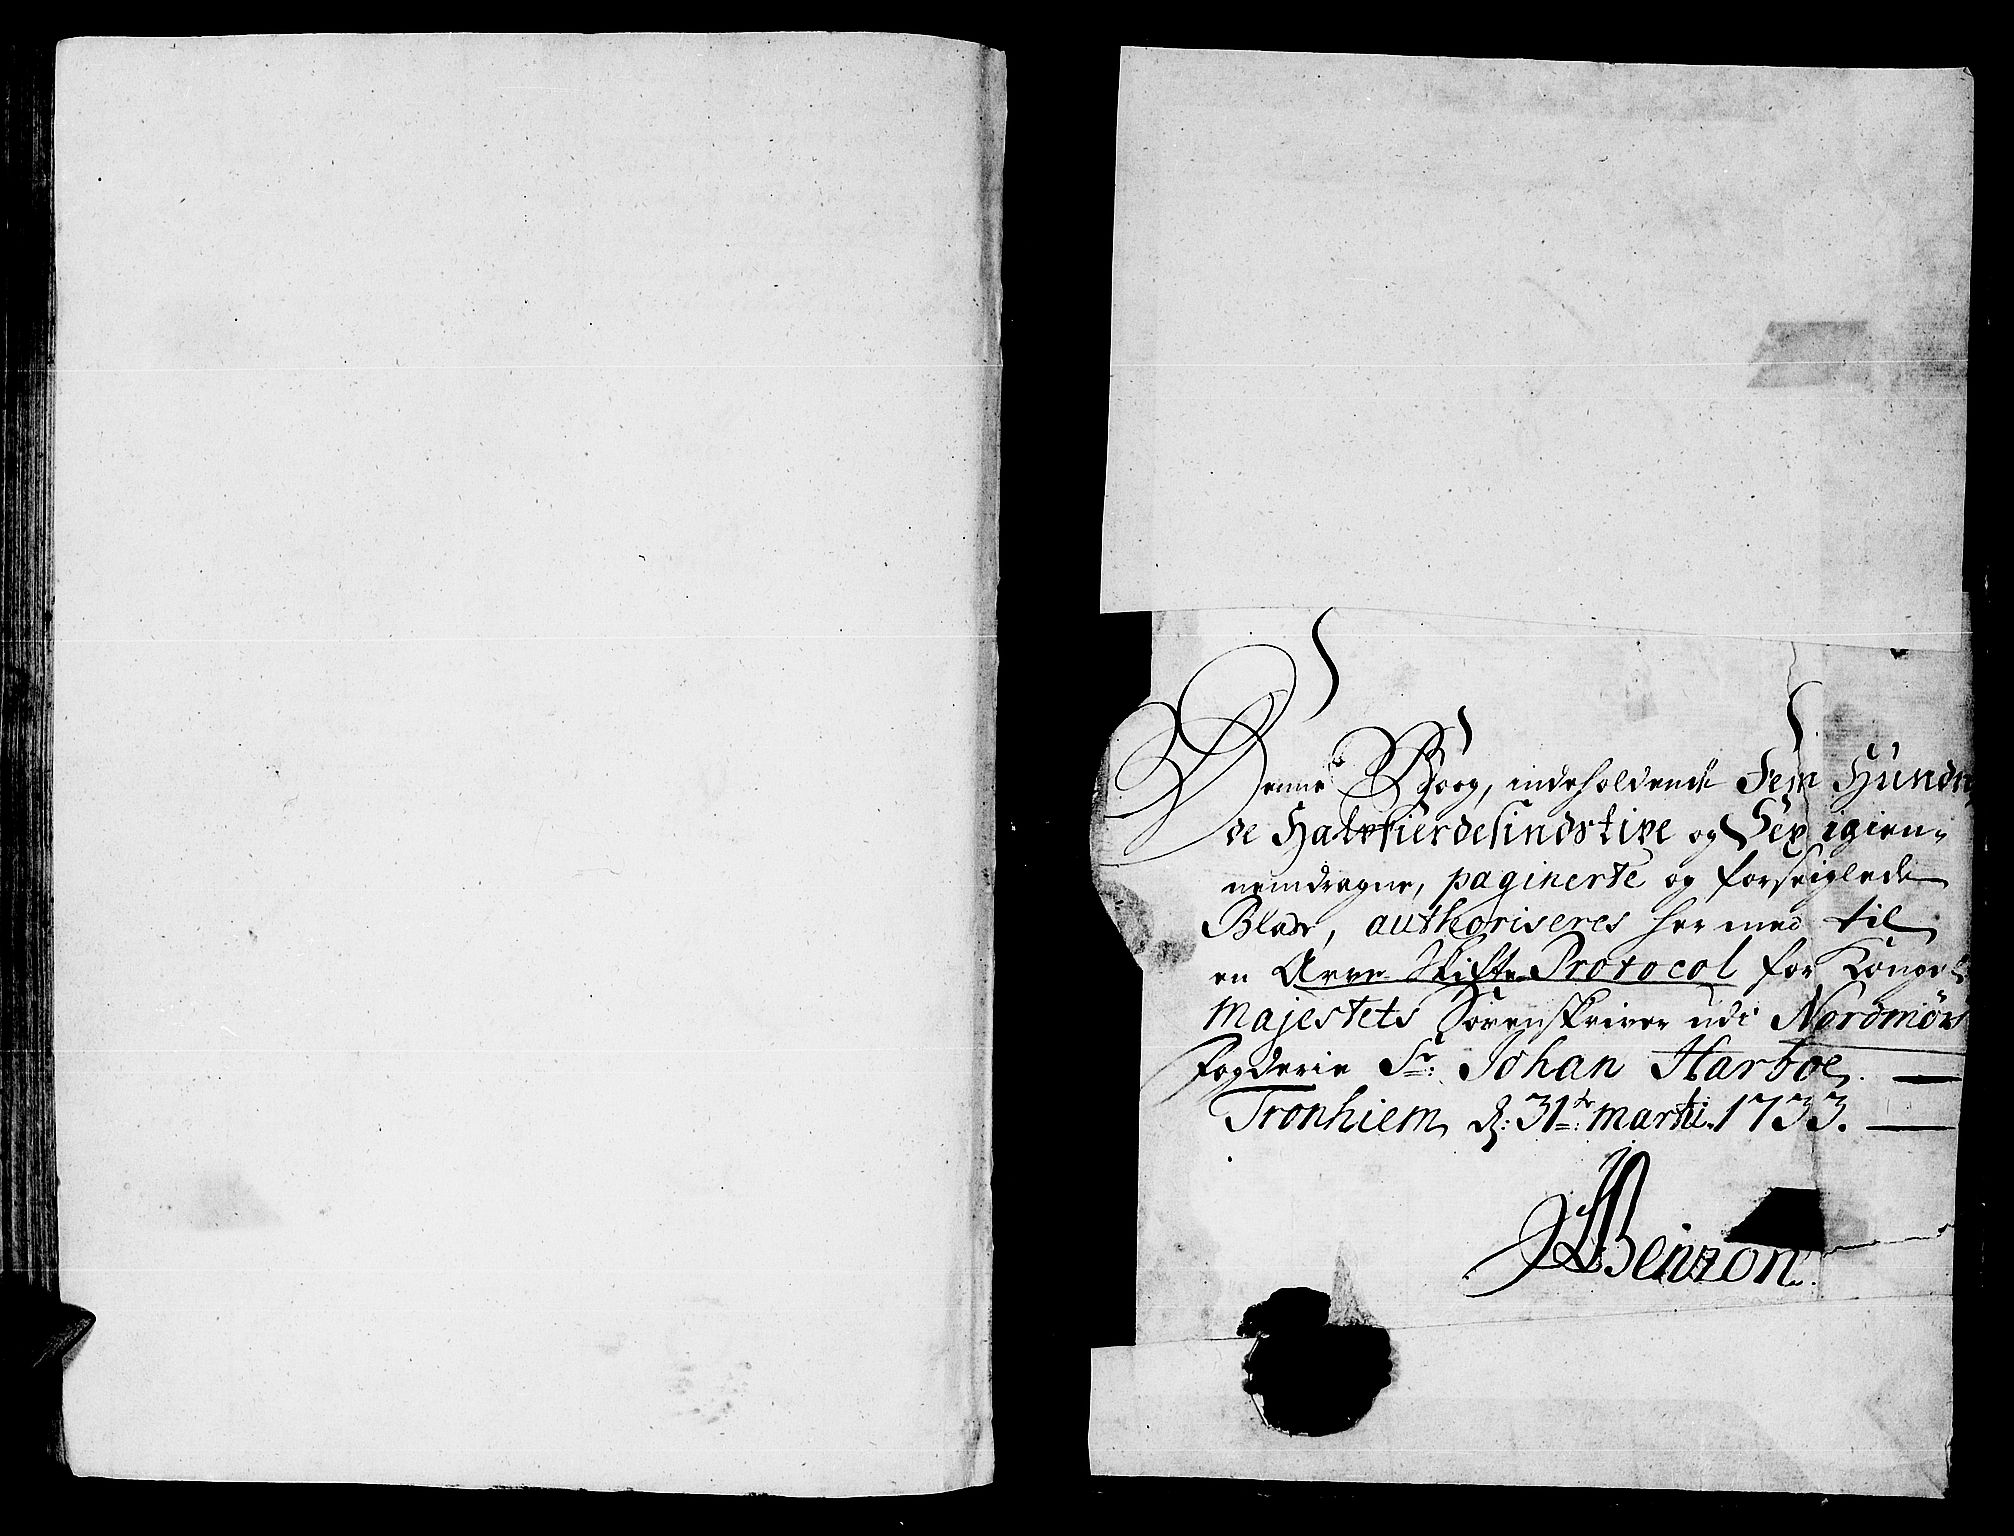 Denne Boog, indeholdende Fem Hundre
de Halvfierdesindstive og Sex igien-
nemdragne, paginerte og forseiglede
Blade, authoriseres her med til
en Arve Skifte Protocol for Kongel:
Majestets Sorenskriver udi Nordmørs
Fogderie Sr: Johan Harboe.
Tronhiem, d: 31te: martii 1733.
Benzon